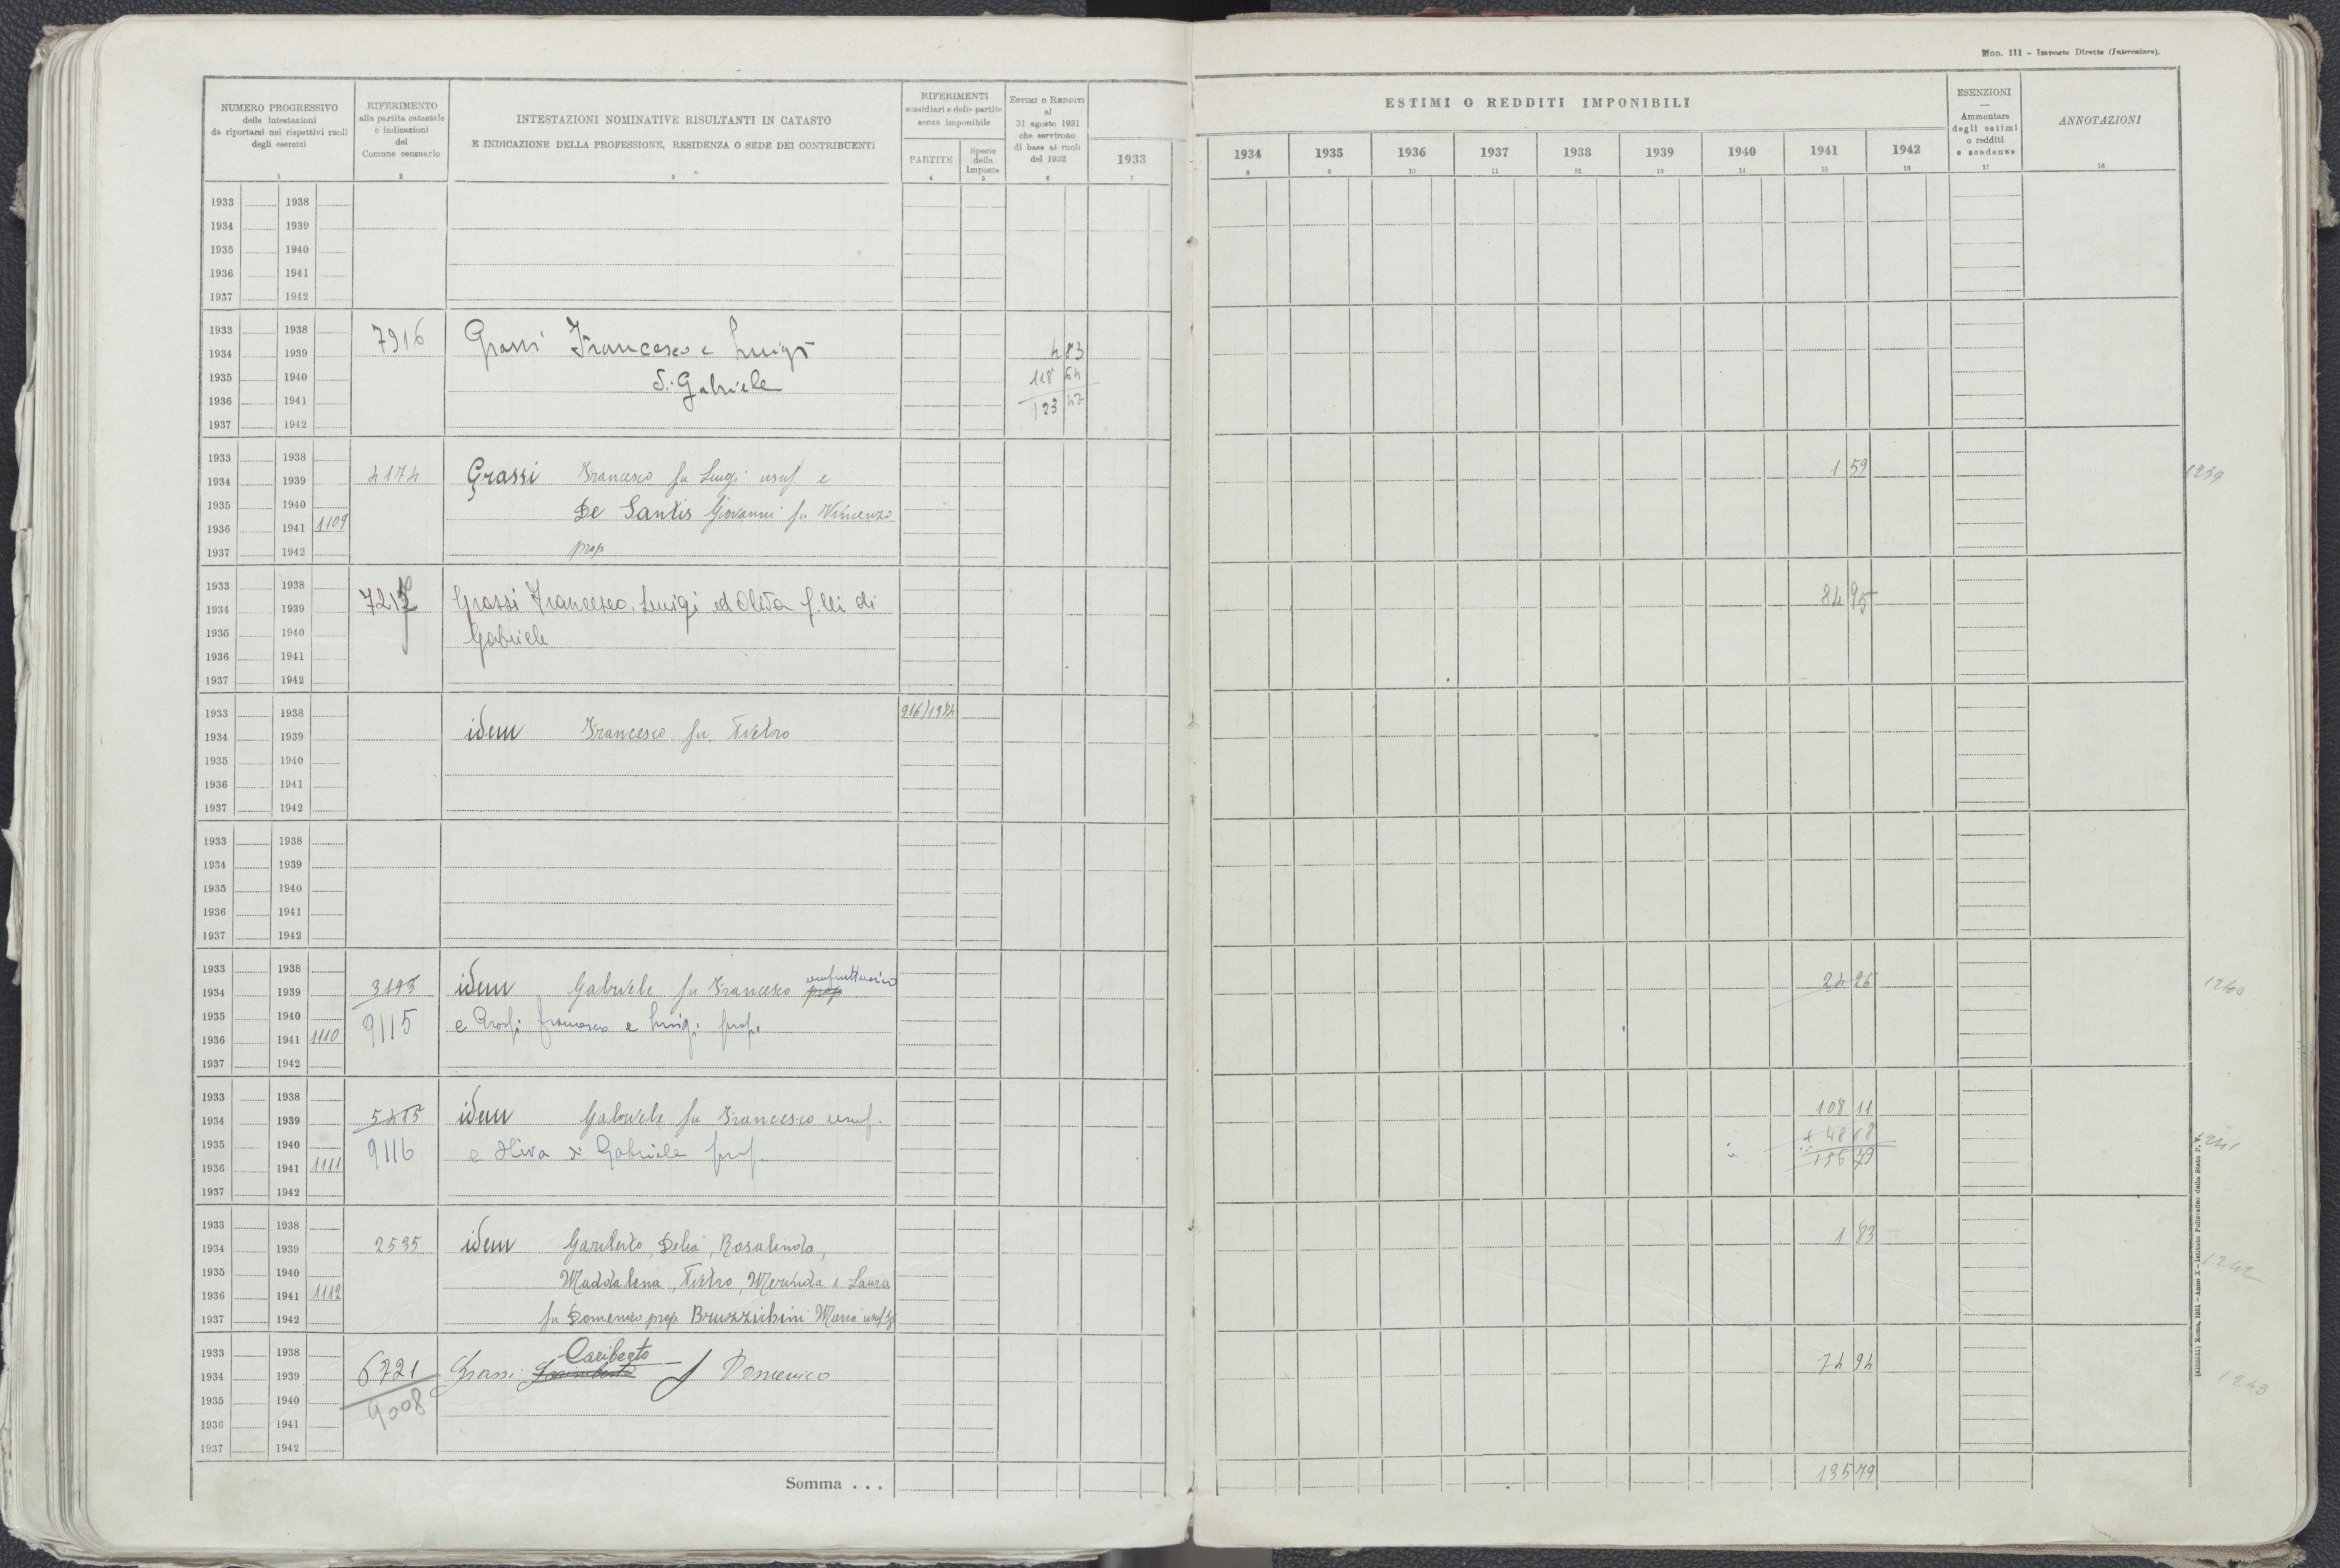 Mon. 111 - Imposte Dirette (Intercalare).
NUMERO PROGRESSIVO
delle intestazioni
da riportarsi nei rispettivi ruoli
degli esercizi
1
RIFERIMENTO
alla partita catastale
e indicazioni
del
Comune censuario
2
INTESTAZIONI NOMINATIVE RISULTANTI IN CATASTO
E INDICAZIONE DELLA PROFESSIONE, RESIDENZA O SEDE DEI CONTRIBUENTI
3
RIFERIMENTI
sussidiari e delle partite
senza imponibile
PARTITE
4
Specie
della
Imposta
5
ESTIMI O REDDITI
al
31 agosto 1931
che servirono
di base ai ruoli
del 1932
6
ESTIMI O REDDITI IMPONIBILI
1933 1934 1935 1936 1937 1938 1939 1940 1941 1942
7 8 9 10 11 12 13 14 15 16
ESENZIONI
—
Ammontare
degli estimi
o redditi
e scadenze
17
ANNOTAZIONI
18
1933 1938
1934 1939
1935 1940
1936 1941
1937 1942
1933 1938
1934 1939 7916 Grassi Francesco e Luigi 4 83
1935 1940 di Gabriele 118 64
1936 1941 123 47
1937 1942
1933 1938
1934 1939 4174 Grassi Francesco fu Luigi usuf e 1 59 1239
1935 1940 De Santis Giovanni fu Vincenzo
1936 1941 1109
1937 1942 prop
1933 1938
1934 1939 Grassi Francesco, Luigi ed Oliva f.lli di 84 95
1935 1940 Gabriele
1936 1941
1937 1942
1933 1938
1934 1939 idem Francesco fu Pietro
1935 1940
1936 1941
1937 1942
1933 1938
1934 1939
1935 1940
1936 1941
1937 1942
1933 1938 usufruttuario
1934 1939 3195 idem Gabriele fu Francesco prop 24 26 1240
1935 1940 9115 e Grassi Francesco e Luigi prop.
1936 1941 1110
1937 1942
1933 1938
1934 1939 5415 idem Gabriele fu Francesco usuf. 108 11
1935 1940 9116 e Oliva di Gabriele prop. + 48 68 1241
1936 1941 1111 156 79
1937 1942
1933 1938
1934 1939 2535 idem Gariberto, Delia, Rosalinda, 1 83
1935 1940 Maddalena, Pietro, Merinda e Laura 1242
1936 1941 1112
1937 1942 fu Domenico prop Bruzzichini Maria usuf
1933 1938 Cariberto
1934 1939 6721 Grassi Domenico 74 94 1243
1935 1940 9008
1936 1941
1937 1942
Somma . . . 135 79
Roma, 1931 - Anno X - Istituto Poligrafico dello Stato P. V.